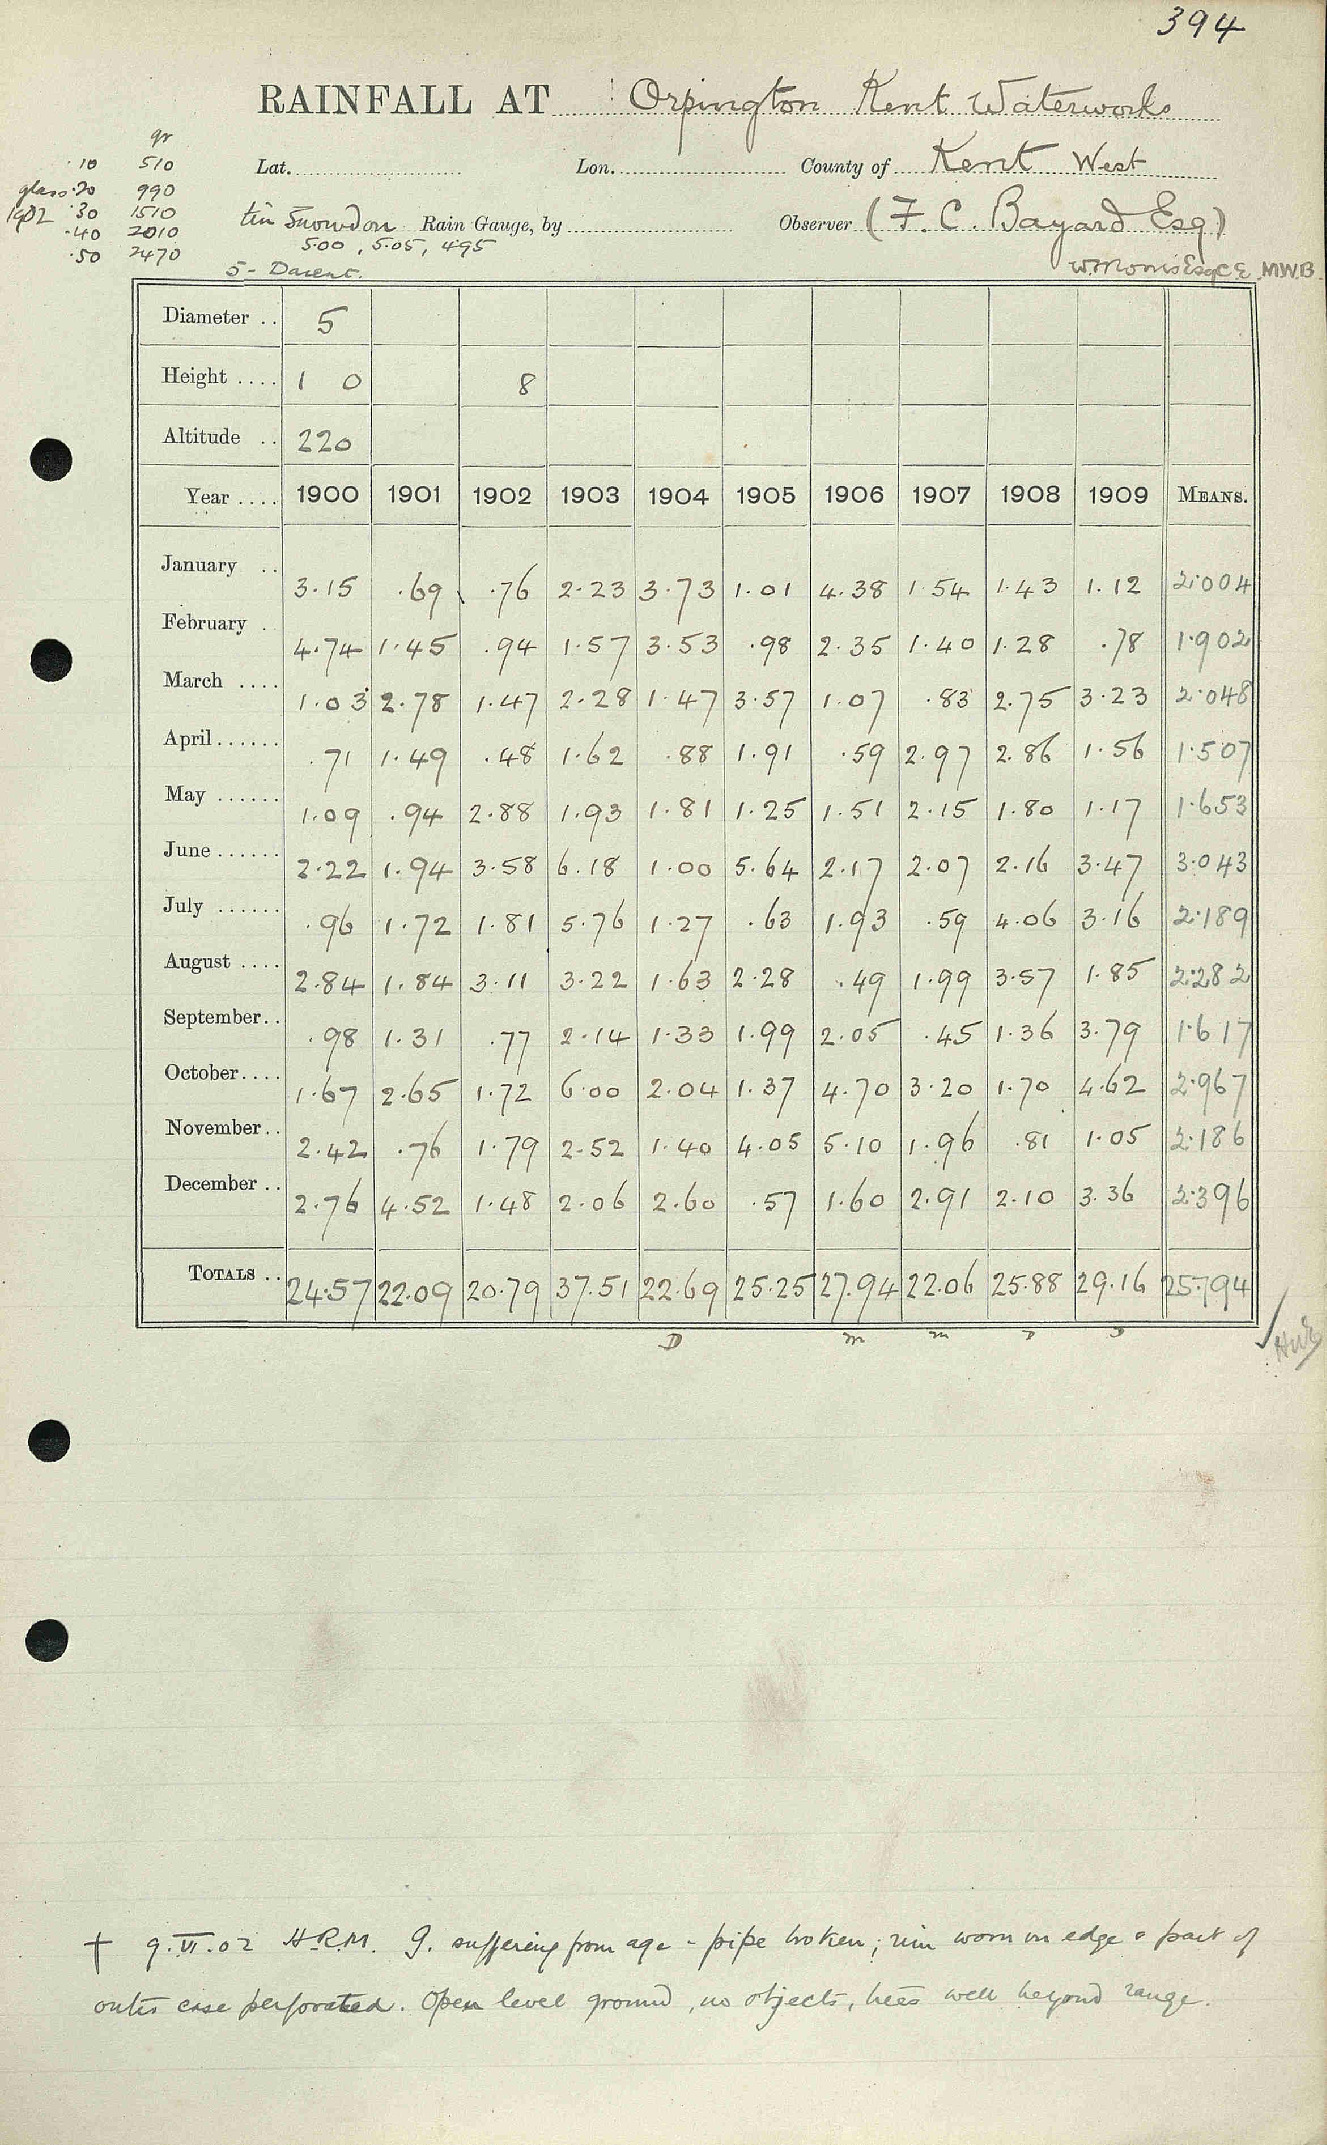 394
RAINFALL AT Orpington Kent Waterworks
gr
.10 510
glass .20 990
1902 .30 1510
.40 2010
.50 2470
Lat. Lon. County of Kent West
tin Snowdon Rain Gauge, by Observer (F. C. Bayard Esq)
5.00, 5.05, 4.95
5 - Darent. W Morris Esq C E. M.W.B.
Diameter .. 5
Height .... 1 0 8
Altitude .. 220
Year .... 1900 1901 1902 1903 1904 1905 1906 1907 1908 1909 MEANS.
January .. 3.15 .69 .76 2.23 3.73 1.01 4.38 1.54 1.43 1.12 2.004
February . 4.74 1.45 .94 1.57 3.53 .98 2.35 1.40 1.28 .78 1.902
March .... 1.03 2.78 1.47 2.28 1.47 3.57 1.07 .83 2.75 3.23 2.048
April...... .71 1.49 .48 1.62 .88 1.91 .59 2.97 2.86 1.56 1.507
May ...... 1.09 .94 2.88 1.93 1.81 1.25 1.51 2.15 1.80 1.17 1.653
June...... 2.22 1.94 3.58 6.18 1.00 5.64 2.17 2.07 2.16 3.47 3.043
July ...... .96 1.72 1.81 5.76 1.27 .63 1.93 .59 4.06 3.16 2.189
August .... 2.84 1.84 3.11 3.22 1.63 2.28 .49 1.99 3.57 1.85 2.282
September.. .98 1.31 .77 2.14 1.33 1.99 2.05 .45 1.36 3.79 1.617
October.... 1.67 2.65 1.72 6.00 2.04 1.37 4.70 3.20 1.70 4.62 2.967
November.. 2.42 .76 1.79 2.52 1.40 4.05 5.10 1.96 .81 1.05 2.186
December .. 2.76 4.52 1.48 2.06 2.60 .57 1.60 2.91 2.10 3.36 2.396
TOTALS .. 24.57 22.09 20.79 37.51 22.69 25.25 27.94 22.06 25.88 29.16 25.794
D m m
† 9.VI.02 H.R.M. G. suffering from age - pipe broken; rim worn on edge & part of
outer case perforated. Open level ground, no objects, trees well beyond range.